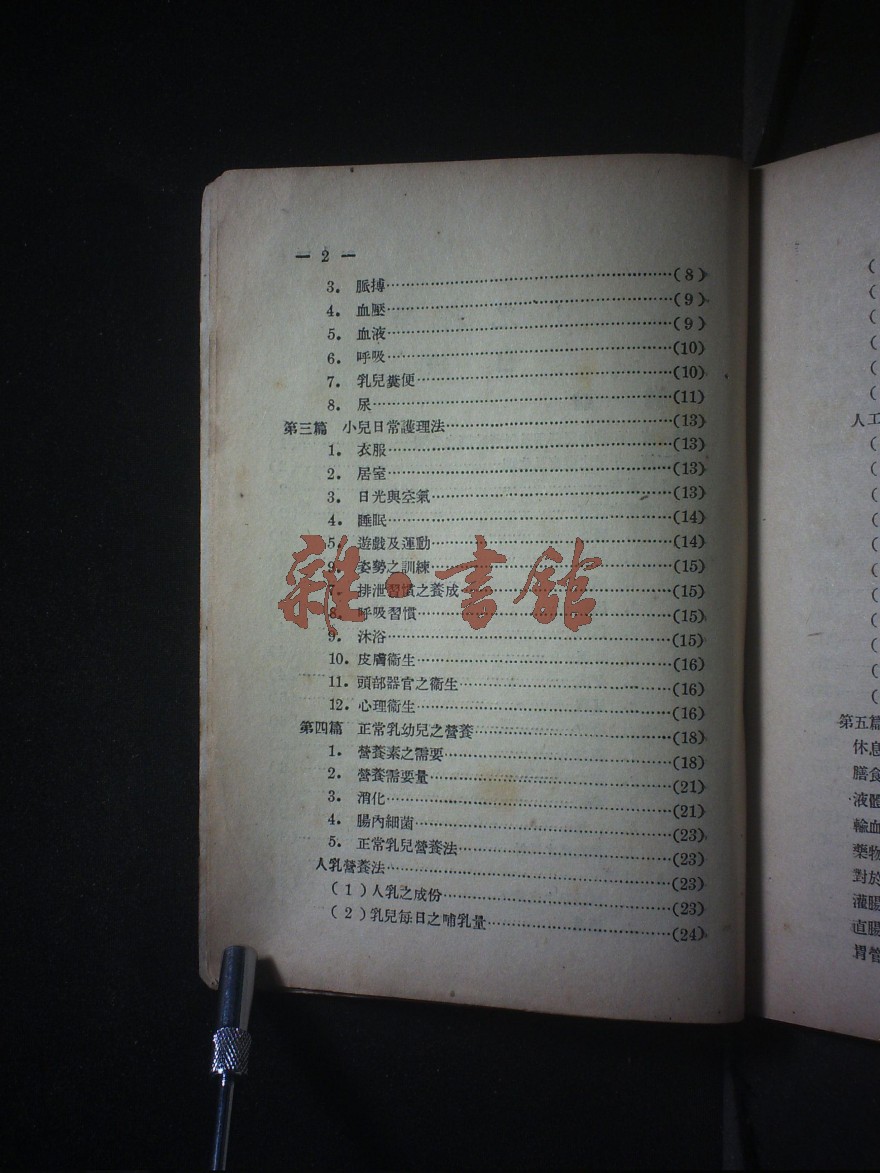 — 2 —
3. 脈搏……(8)
4. 血壓……(9)
5. 血液……(9)
6. 呼吸……(10)
7. 乳兒糞便……(10)
8. 尿……(11)
第三篇 小兒日常護理法……(13)
1. 衣服……(13)
2. 居室……(13)
3. 日光與空氣……(13)
4. 睡眠……(14)
5. 遊戲及運動……(14)
9. 姿勢之訓練……(15)
7. 排泄習慣之養成……(15)
8. 呼吸習慣……(15)
9. 沐浴……(15)
10. 皮膚衞生……(16)
11. 頭部器官之衞生……(16)
12. 心理衞生……(16)
第四篇 正常乳幼兒之營養……(18)
1. 營養素之需要……(18)
2. 營養需要量……(21)
3. 消化……(21)
4. 腸內細菌……(23)
5. 正常乳兒營養法……(23)
人乳營養法……(23)
(1)人乳之成份……(23)
(2)乳兒每日之哺乳量……(24)
雜·書館
人工
第五篇
休息
膳食
液體
輸血
藥物
對於
灌腸
直腸
胃管